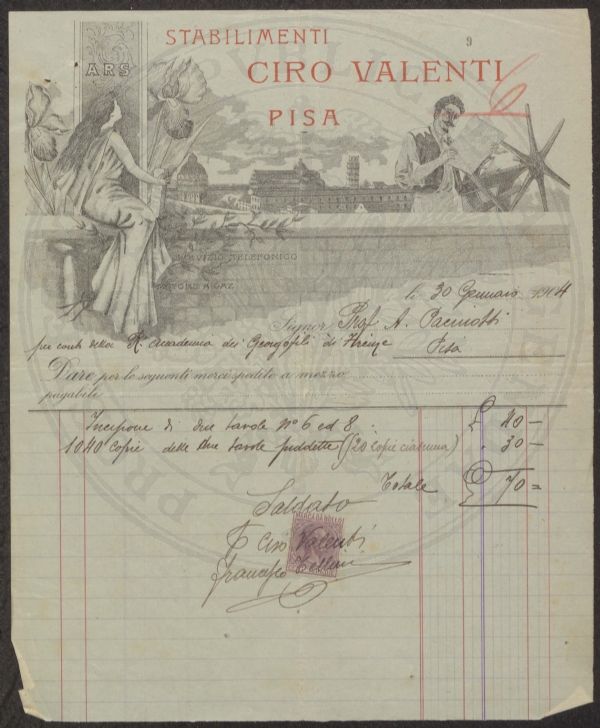 STABILIMENTI
9
CIRO VALENTI
6
PISA
ARS
SERVIZIO TELEFONICO
li 30 Gennaio 1904
Signor Prof. A. Pacinotti
per conto della R. Accademia dei Georgofili di Firenze Pisa
Dare per le seguenti merci spedite a mezzo
pagabile
Incisione di due tavole N° 6 ed 8 £ 40 —
1040 Copie delle due tavole suddette (520 copie ciascuna) " 30 —
Totale £ 70 =
Saldato
p Ciro Valenti
MARCA DA BOLLO
Francesco Bellini